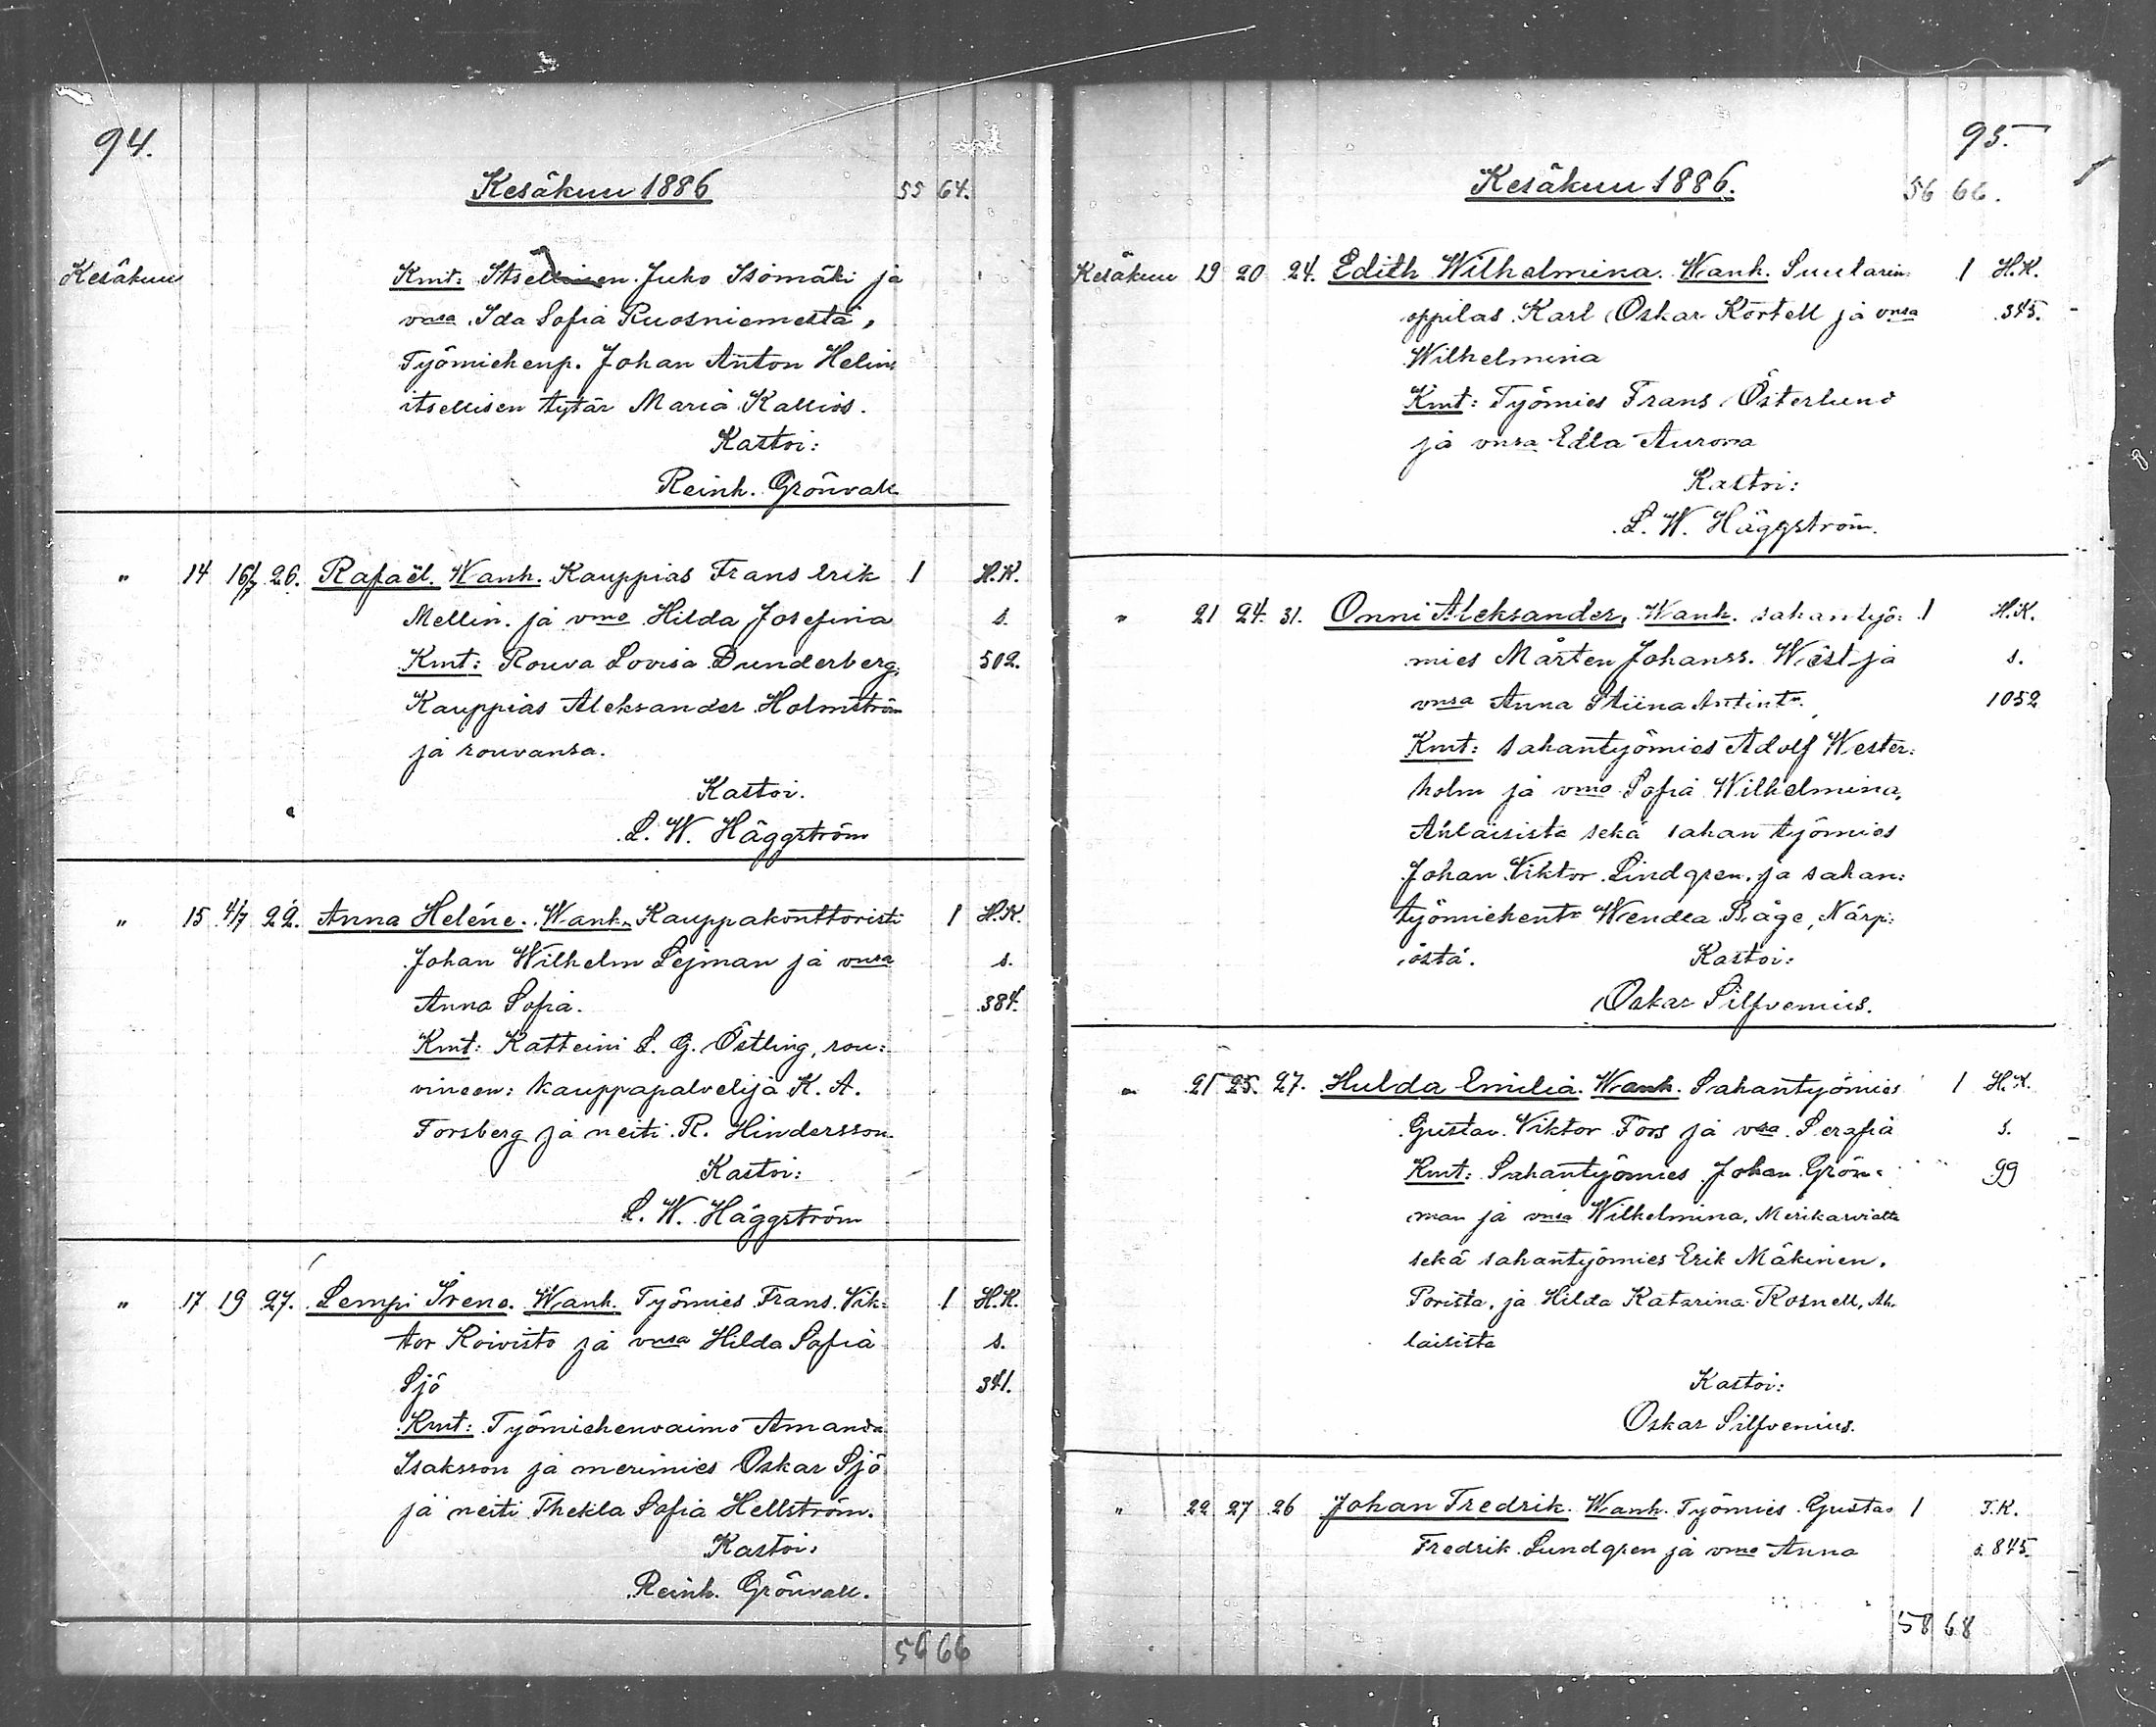 94.
Kesäkuu 1886 55 64.
Kesäkuu Kmt: Itsellinen Juho Isomäki ja
vnsa Ida Sofia Ruosniemestä,
Työmiehenp. Johan Anton Helin
itsellisen tytär Maria Kallios.
Kastoi:
Reinh. Grönvall
" 14 16/7 26. Rafaël. Wanh. Kauppias Frans Erik 1 H.K.
Mellin. ja vmo Hilda Josefina s.
Kmt: Rouva Lovisa Dunderberg, 502.
Kauppias Aleksander Holmström
ja rouvansa.
Kastoi.
L. W. Häggström
" 15 4/7 22. Anna Heléne. Wanh. Kauppakonttoristi 1 H.K.
Johan Wilhelm Lejman ja vnsa s.
Anna Sofia. 384.
Kmt: Katteini L. G. Östling, rou:
vineen: kauppapalvelija K. A.
Forsberg ja neiti R. Hindersson.
Kastoi:
L. W. Häggström
" 17 19 27. Lempi Irene. Wanh. Työmies Frans. Vik: 1 H.K.
tor Koivisto ja vnsa Hilda Sofia s.
Sjö 341.
Kmt: Työmiehenvaimo Amanda
Isaksson ja merimies Oskar Sjö
ja neiti Thekla Sofia Hellström.
Kastoi:
Reinh. Grönvall.
56 66
95.
Kesäkuu 1886. 56 66.
Kesäkuu 19 20 24. Edith Wilhelmina. Wanh. Suutarin 1 H.K.
oppilas Karl Oskar Kortell ja vnsa 345.
Wilhelmina
Kmt: Työmies Frans Österlund
ja vnsa Edla Aurora
Kastoi:
L. W. Häggström.
" 21 24. 31. Onni Aleksander. Wanh. sahantyö: 1 H.K.
mies Mårten Johanss. Wäst ja s.
vnsa Anna Stiina Antint. 1052
Kmt: sahantyömies Adolf Wester:
holm ja vmo Sofia Wilhelmina,
Ahlaisista sekä sahan työmies
Johan Viktor Lindgren. ja sahan:
työmiehentr Wendla Båge, Närp:
iöstä. Kastoi:
Oskar Silfvenius.
" 21 25. 27. Hulda Emilia. Wanh. Sahantyömies 1 H.K.
Gustav. Viktor Fors ja vsa Serafia s.
Kmt: Sahantyömies Johan Grön: 99
man ja vnsa Wilhelmina, Merikarvialta
sekä sahantyömies Erik Mäkinen.
Porista, ja Hilda Katarina Rosnell, Ah.
laisista
Kastoi:
Oskar Silfvenius.
" 22 27 26 Johan Fredrik. Wanh. Työmies Gustav 1 T.K.
Fredrik Lundgren ja vmo Anna s. 845.
58 68